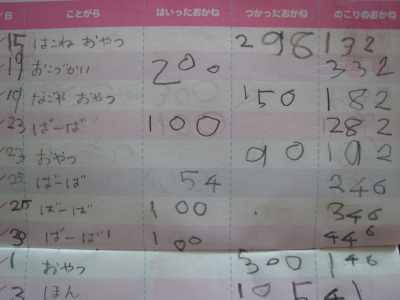 /日 ことがら はいったおかね つかったおかね のこりのおかね
/15 はこね おやつ 298 132
/19 おこづかい 200 332
/19 なごや おやつ 150 182
/23 ばーば 100 282
/23 おやつ 90 192
/25 ばーば 54 246
/25 ばーば 100 346
/30 ばーば 100 446
/1 おやつ 300 146
/3 ほん 105 41